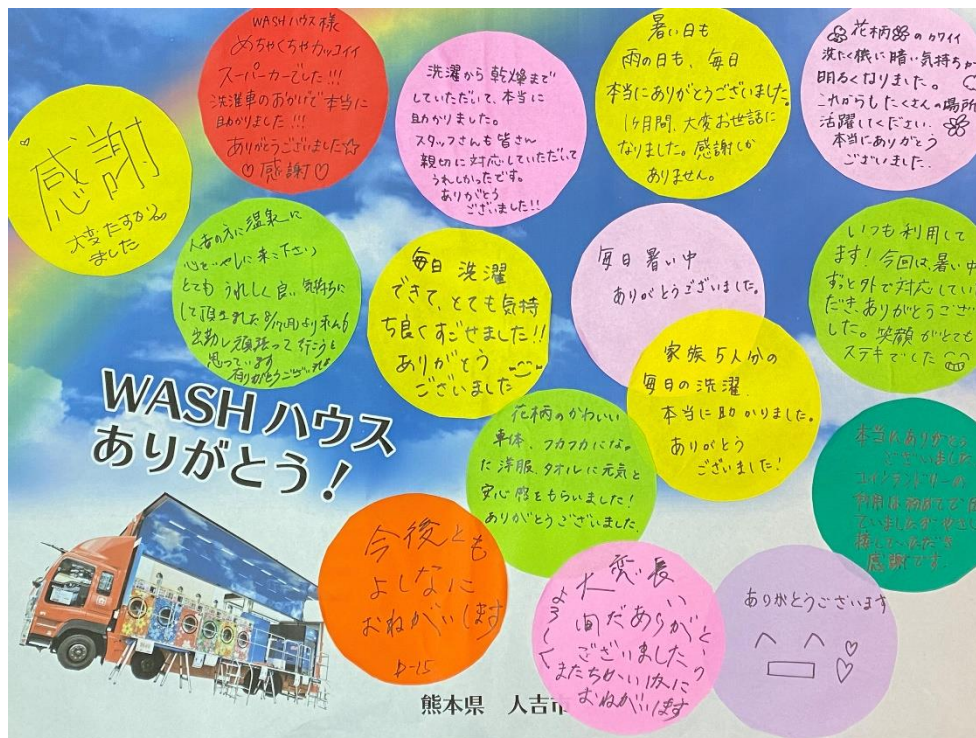 感謝
大変たすかり
ました
WASHハウス様
めちゃくちゃカッコイイ
スーパーカーでした!!!
洗濯車のおかげで本当に
助かりました!!!
ありがとうございました☆
♡感謝♡
洗濯から乾燥まで
していただいて、本当に
助かりました。
スタッフさんも皆さん
親切に対応していただいて
うれしかったです。
ありがとう
ございました!!
暑い日も
雨の日も、毎日
本当にありがとうございました。
1ヶ月間、大変お世話に
なりました。感謝しか
ありません。
花柄のカワイイ
洗たく機に暗い気持ちが
明るくなりました。
これからもたくさんの場所
活躍してください。
本当にありがとう
ございました。
人吉の方に温泉に
心をいやしに来て下さい
とてもうれしく良い気持ちに
して頂きました
出勤し頑張って行こうと
思っています
有りがとうございました
毎日 洗濯
できて、とても気持
ち良くすごせました!!
ありがとう
ございました
毎日暑い中
ありがとうございました。
いつも利用して
ます!今回は、暑い中
ずっと外で対応してい
だき、ありがとうござ
した。笑顔がとても
ステキでした
家族5人分の
毎日の洗濯
本当に助かりました。
ありがとう
ございました!
花柄のかわいい
車体、フカフカにな。
た洋服、タオルに元気と
安心感をもらいました!
ありがとうございました。
本当にありがとう
ございました
感謝です
WASHハウス
ありがとう!
今後とも
よしなに
おねがいします
D-15
大変長い
間だありがとう
ございました
またちかい内に
よろしく
おねがいます
ありがとうございます
熊本県 人吉市